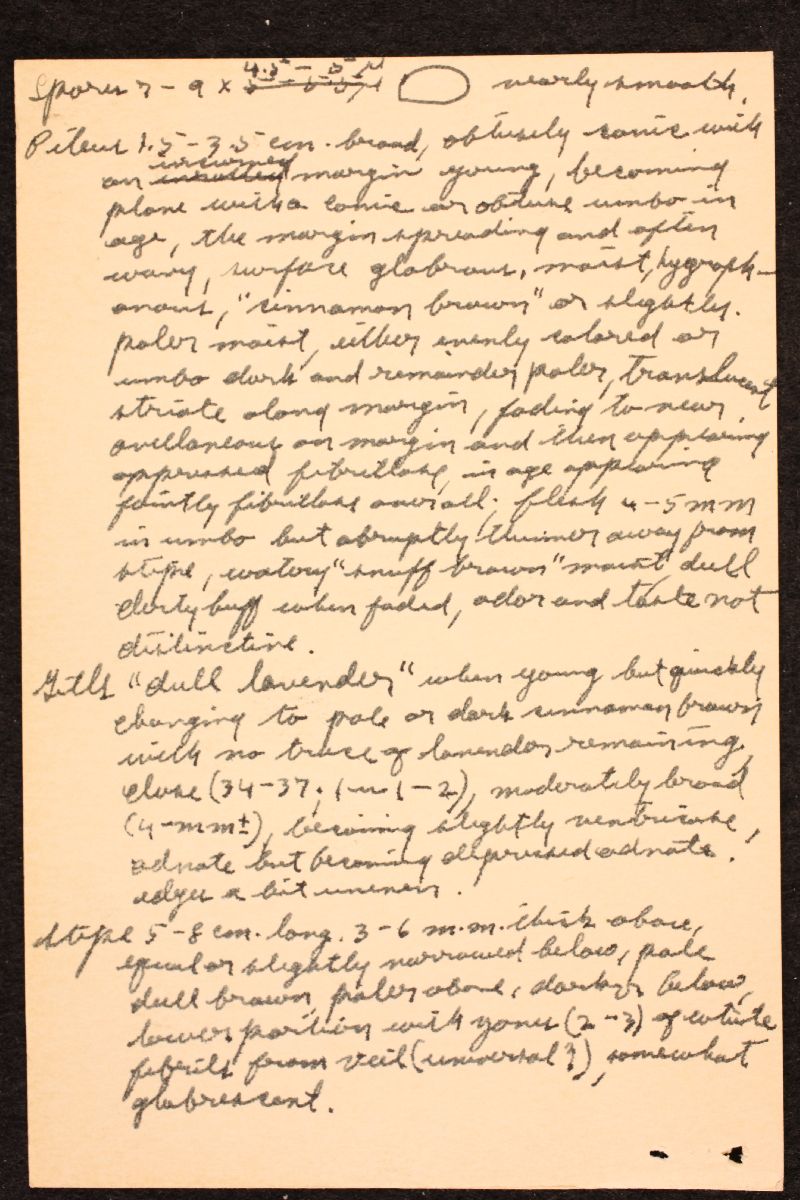 Spores 7-9 × 4.5-5μ nearly smooth.
Pileus 1.5-3.5 cm. broad, obtusely conic with
an incurved margin young, becoming
plane with a conic or obtuse umbo in
age, the margin spreading and often
wavy, surface glabrous, moist, hygroph-
anous, "cinnamon brown" or slightly
paler moist, either evenly colored or
umbo dark and remainder paler, translucent
striate along margin, fading to near
avellaneous on margin and then appearing
appressed fibrillose, in age appearing
faintly fibrillose overall; flesh 4-5 mm
in umbo but abruptly thinner away from
stipe, watery "snuff brown" moist dull
dirty buff when faded, odor and taste not
distinctive.
Gills "dull lavender" when young but quickly
changing to pale or dark cinnamon brown
with no trace of lavender remaining,
close (34-37; 1-2), moderately broad
(4-mm±), becoming slightly ventricose,
adnate but becoming depressed adnate.
edges a bit uneven.
Stipe 5-8 cm. long. 3-6 m.m. thick above,
equal or slightly narrowed below, pale
dull brown, paler above, darker below,
lower portion with zones (2-3) of white
fibrils from veil (universal?), somewhat
glabrescent.